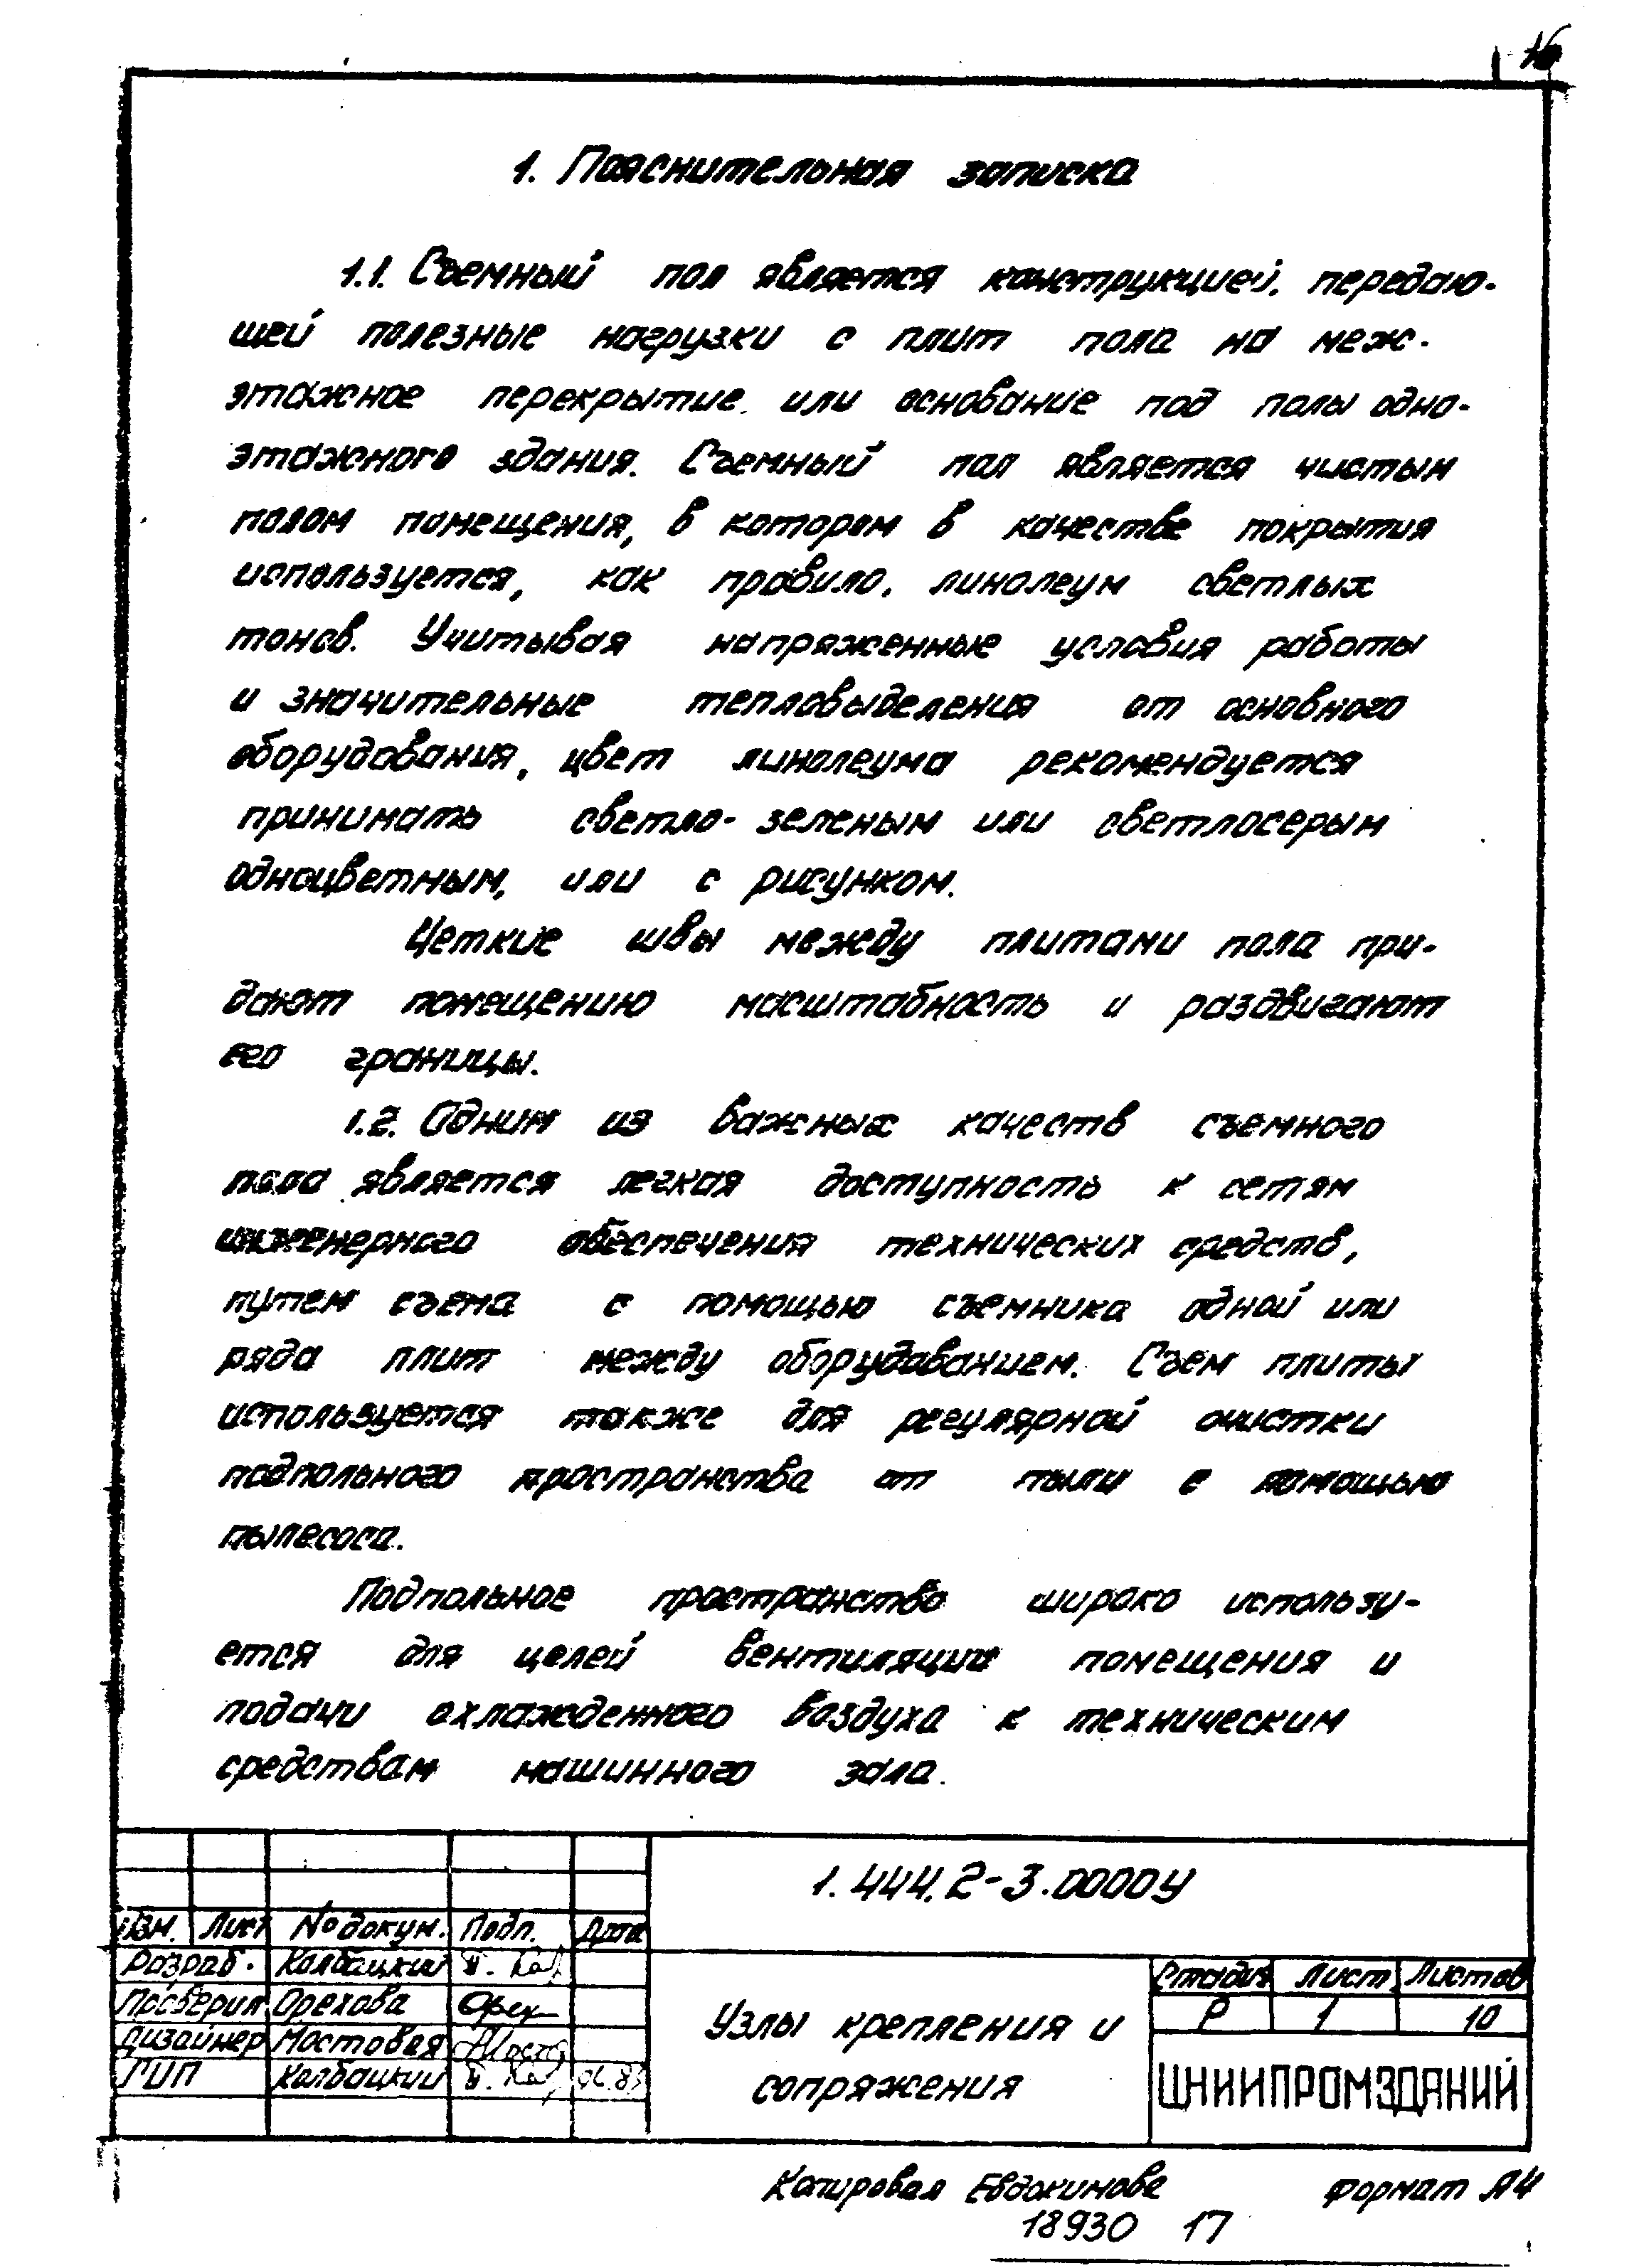 16
1. Пояснительная записка
1.1. Съемный пол является конструкцией, передаю-
щей полезные нагрузки с плит пола на меж-
этажное перекрытие или основание под полы одно-
этажного здания. Съемный пол является чистым
полом помещения, в котором в качестве покрытия
используется, как правило, линолеум светлых
тонов. Учитывая напряженные условия работы
и значительные тепловыделения от основного
оборудования, цвет линолеума рекомендуется
принимать светло-зеленым или светлосерым
одноцветным, или с рисунком.
Четкие швы между плитами пола при-
дают помещению масштабность и раздвигают
его границы.
1.2. Одним из важных качеств съемного
пола является легкая доступность к сетям
инженерного обеспечения технических средств,
путем съема с помощью съемника одной или
ряда плит между оборудованием. Съем плиты
используется также для регулярной очистки
подпольного пространства от пыли с помощью
пылесоса.
Подпольное пространство широко использу-
ется для целей вентиляции помещения и
подачи охлажденного воздуха к техническим
средствам машинного зала.
1.444.2-3.0000У
Изм. Лист № докум. Подп. Дата
Разраб. Колбацкий
Проверил Орехова Орех
Дизайнер Мостовая
ГИП Колбацкий
Узлы крепления и
сопряжения
Стадия Лист Листов
Р 1 10
ЦНИИПРОМЗДАНИЙ
Копировал Евдокимова Формат А4
18930 17